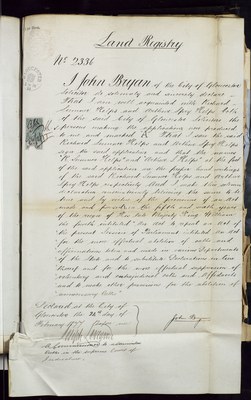 Land Registry
No. 2336
I John Bryan of the City of Gloucester
Solicitor do solemnly and sincerely declare
That I am well acquainted with Richard
Seymour Relfs and William Spry Relfs both
of the said City of Gloucester Solicitors the
persons making the application now produced
and marked That I saw the said
Richard Seymour Relfs and William Spry Relfs
sign the said application and that the signatures
at the foot
of the said application are the proper hand writing
of the said Richard Seymour Relfs and William
Spry Relfs respectively And I make this solemn
declaration conscientiously believing the same to be
true and by virtue of the provisions of an Act
made and passed in the fifth and sixth years
of the reign of His late Majesty King William
the fourth intituled "An Act to repeal an Act of
the present Session of Parliament intituled An Act
for the more effectual abolition of oaths and
affirmations taken and made in various departments
of the State and to substitute Declarations in lieu
thereof and for the more effectual suppression of
voluntary and extrajudicial oaths and affidavits
and to make other provisions for the abolition of
unnecessary oaths."
Declared at the City of
Gloucester the day of
February 1877 Before me
John Bryan
A Commissioner to administer
Oaths in the Supreme Court of
Judicature